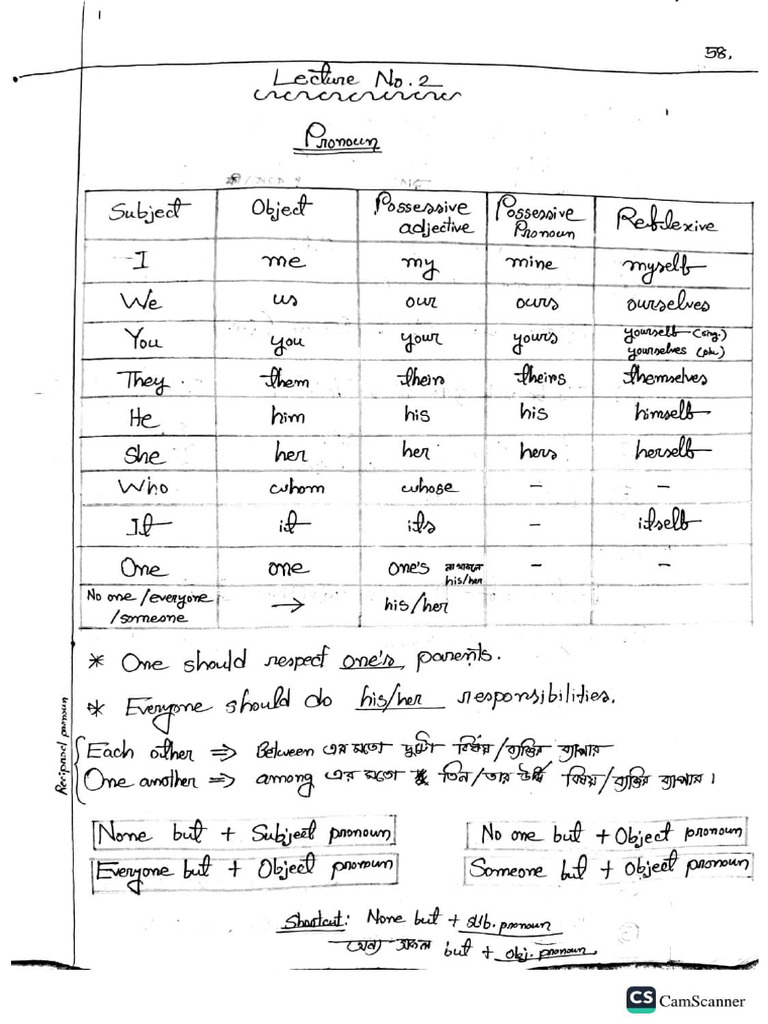 58.
Lecture No. 2
Pronoun
Subject Object Possessive adjective Possessive Pronoun Reflexive
I me my mine myself
We us our ours ourselves
You you your yours yourself (sing.) yourselves (plu)
They them their theirs themselves
He him his his himself
She her her hers herself
Who whom whose - -
It it its - itself
One one one's না থাকলে his/her - -
No one/everyone/someone → his/her
* One should respect one's parents.
* Everyone should do his/her responsibilities.
Reciprocal pronoun
Each other ⇒ Between এর মতো দুটো বিষয়/ব্যক্তির ব্যাপার
One another ⇒ among এর মতো তিন/তার উর্ধ্ব বিষয়/ব্যক্তির ব্যাপার।
None but + Subject pronoun No one but + Object pronoun
Everyone but + Object pronoun Someone but + Object pronoun
Shortcut: None but + sub. pronoun
অন্য সকল but + obj. pronoun
CS CamScanner